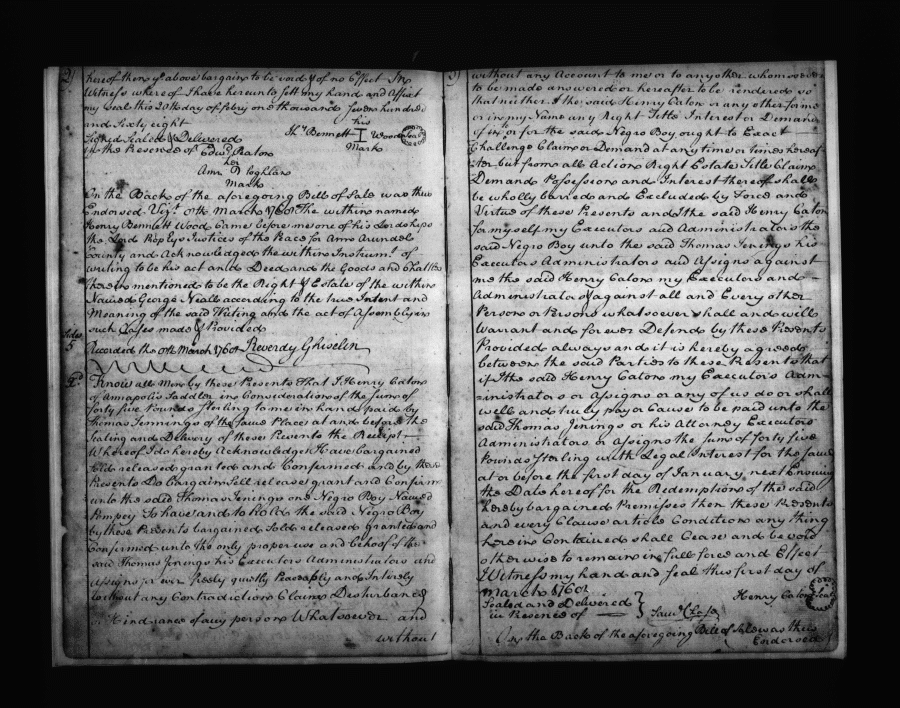 2)
hereof then ye above bargain to be void & of no Effect In
Witness whereof I have hereunto sett my hand and Affixt
my Seale this 20th day of febry one thousand Seven hundred
and Sixty eight
his
Signed Sealed & Delivered
Hy Bennett I Wood Seal
in the Presence of
Mark
her
Ann
Mark
On the Back of the aforegoing Bill of Sale was thus
Endorsed Vizt March 1768 The within named
Henry Bennett Wood Came before me one of his Lordships
the Lord Justices of the Peace for Ann Arundel
County and Acknowledged the within Instrumt of
writing to be his act and Deed and the Goods and Chattles
therein mentioned to be the Right & Estate of the within
Named George Neall according to the true Intent and
Meaning of the said Writing and the act of Assembly in
such Cases made & Provided
Sides
5
Recorded the March 1768 Reverdy Ghiselin
Know all Men by these Presents That I Henry Caton
of Annapolis Saddler in Consideration of the Sum of
forty five Pounds Sterling to me in hand paid by
Thomas Jennings of the Same Place at and before the
Sealing and Delivery of these Presents the Receipt
Whereof I do hereby Acknowledge Have bargained
Sold released granted and Confirmed and by these
Presents Do Bargain Sell release grant and Confirm
unto the said Thomas Jenings one Negro Boy Named
Pompey To have and to hold the said Negro Boy
by these Presents bargained Sold released granted and
Confirmed unto the only proper use and behoof of the
said Thomas Jenings his Executors Administrators and
Assigns for ever freely quietly Peaceably and Intirely
without any Contradiction Claim Disturbance
or Hindrance of any person Whatsoever and
without
3)
without any Account to me or to any other whomsoever
to be made answered or hereafter to be rendered so
that neither I the said Henry Caton or any other for me
or in my Name any Right Title Interest or Demand
of in or for the said Negro Boy ought to Exact
Challenge Claim or Demand at any time or times hereaf-
ter but from all Action Right Estate Title Claim
Demand Possession and Interest thereof shall
be wholly barred and Excluded by Force and
Virtue of these Presents and I the said Henry Caton
for myself my Executors and Administrators the
said Negro Boy unto the said Thomas Jenings his
Executors Administrators and Assigns against
me the said Henry Caton my Executors and
Administrators & against all and Every other
Person or Persons whatsoever shall and will
Warrant and forever Defend by these Presents
Provided always and it is hereby agreed
between the said Parties to these Presents that
if I the said Henry Caton my Executors Adm-
inistrators or Assigns or any of us do or shall
well and truly pay or Cause to be paid unto the
said Thomas Jenings or his Attorney Executors
Administrators or Assigns the Sum of forty five
Pounds Sterling with Legal Interest for the same
at or before the first day of January next Ensuing
the Date hereof for the Redemption of the said
hereby bargained Premisses then these Presents
and every Clause article Condition any thing
herein Contained shall Cease and be void
otherwise to remain in full force and Effect
Witness my hand and Seal this first day of
March 1768
Henry Caton Seal
Sealed and Delivered
in Presence of
Saml Chase
On the Back of the aforegoing Bill of Sale was thus
Endorsed